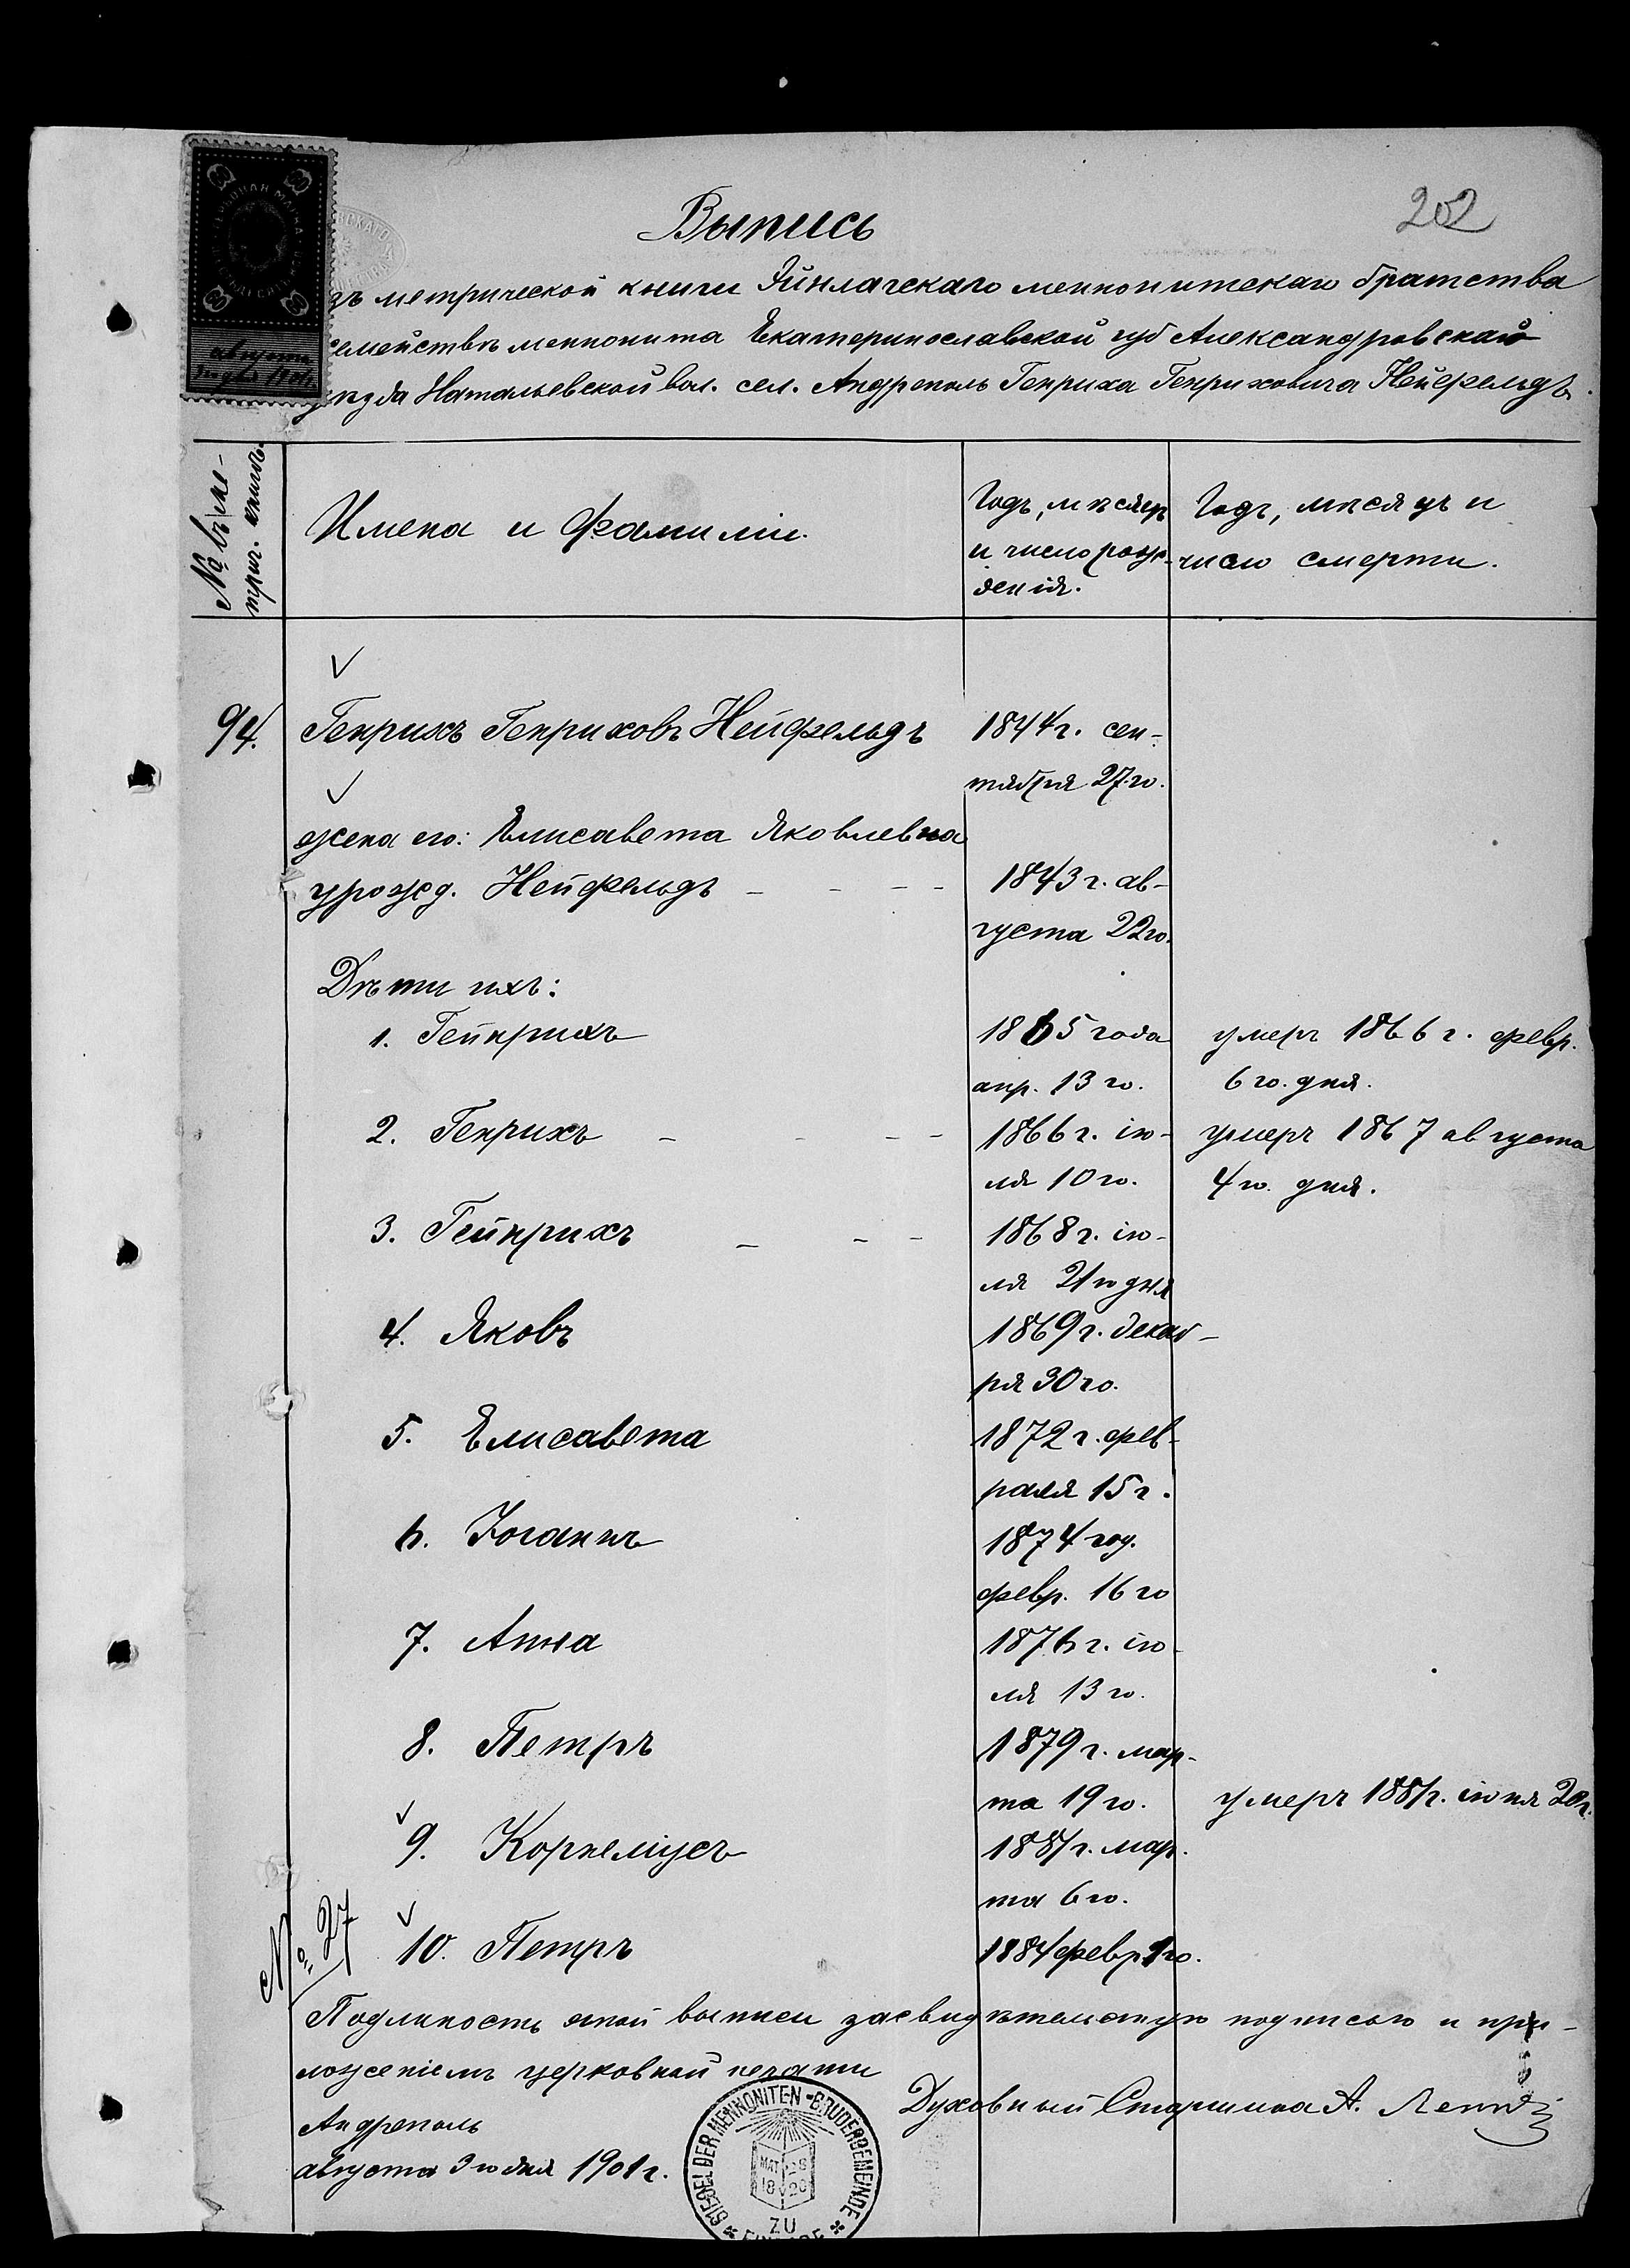 202
Выпись
зъ метрической книги Эйнлагскаго меннонитскаго братства
семействѣ меннонита Екатеринославской губ Александровскаго
уѣзда Натальевской вол. сел. Андреполь Генриха Генриховича Нейфельдъ.
августа
3го дня 1901 г.
№ въ ме-
трич. книгѣ.
Имена и Фамиліи.
Годъ, мѣсяцъ
и число рож-
денія.
Годъ, мѣсяцъ и
число смерти.
94. Генрихъ Генриховъ Нейфельдъ 1844 г. сен-
тября 27 го.
жена его: Елисавета Яковлевна
урожд. Нейфельдъ - - - - 1843 г. ав-
густа 22 го.
Дѣти ихъ:
1. Гейнрихъ 1865 года умеръ 1866 г. февр.
апр. 13 го. 6 го. дня.
2. Генрихъ - - - - 1866 г. ію- умеръ 1867 августа
ля 10 го. 4 го. дня.
3. Гейнрихъ - - - 1868 г. ію-
ля 21 го дня
4. Яковъ 1869 г. декаб-
ря 30 го.
5. Елисавета 1872 г. фев-
раля 15 г.
6. Іоганнъ 1874 год.
февр. 16 го
7. Анна 1876 г. ію-
ля 13 го.
8. Петръ 1879 г. мар-
та 19 го. умеръ 1881 г. іюня 20 г.
9. Корнеліусъ 1881 г. мар.
та 6 го.
10. Петръ 1884 февр. 1 го.
№ 27
Подлиность этой выписи засвидѣтельствую подписью и при-
ложеніемъ церковной печати
Андреполь
августа 3 го дня 1901 г.
Духовный Старшина А.
SIEGEL DER MENNONITEN-BRUDERGEMEINDE
MAT 28
18 20
ZU